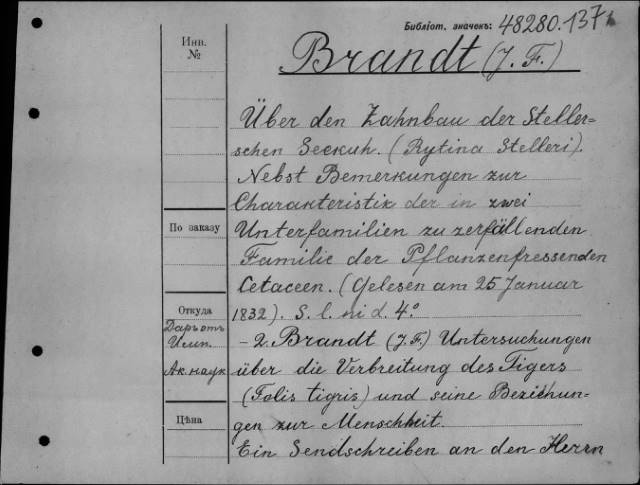 Библіот. значекъ: 48280.137
Инв.
№
Brandt (J. F.)
Über den Zahnbau der Steller=
schen Seekuh. (Rytina Stelleri).
Nebst Bemerkungen zur
Charakteristik der in zwei
По заказу
Unterfamilien zu zerfällenden
Familie der Pflanzenfressenden
Cetaceen. (Gelesen am 25 Januar
Откуда
1832). S. l. ni d. 4°
Даръ отъ
Имп.
Ак. наук
– 2. Brandt (J. F.) Untersuchungen
über die Verbreitung des Tigers
(Folis tigris) und seine Beziehun-
Цѣна
gen zur Menschheit.
Ein Sendschreiben an den Herrn